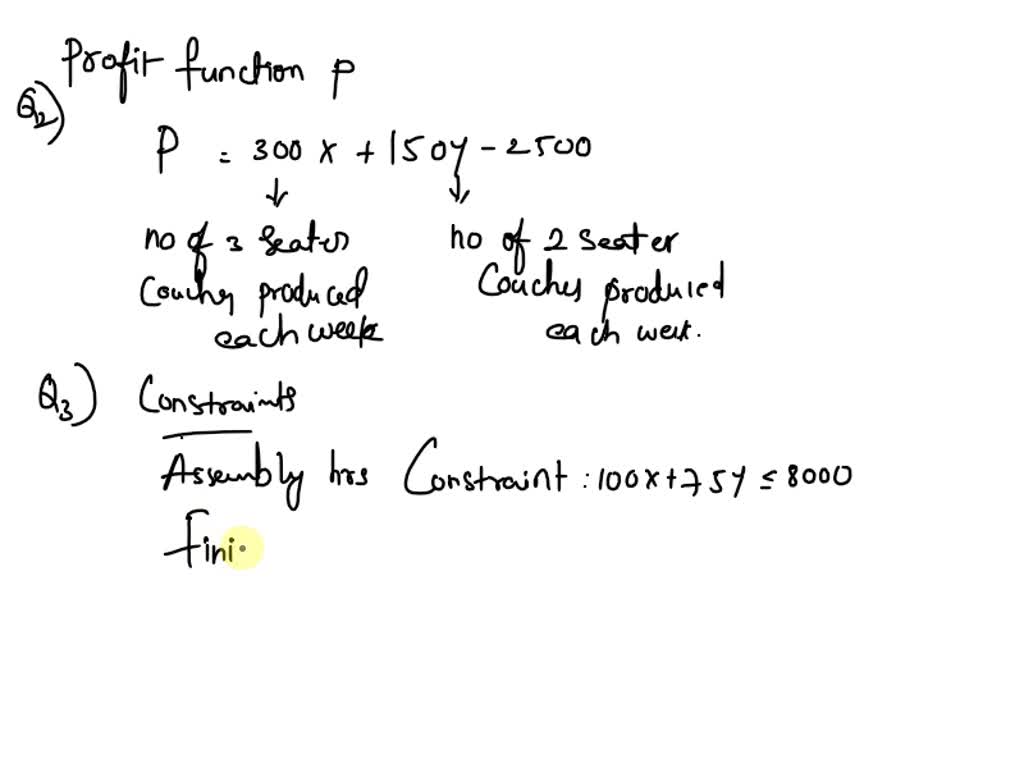 Profit function P
Q2)
P = 300 x + 150y - 2500
↓ ↓
no of 3 Seater no of 2 seater
Couches produced Couches produced
each week each week.
Q3) Constraints
Assembly hrs Constraint : 100x + 75y ≤ 8000
Fini